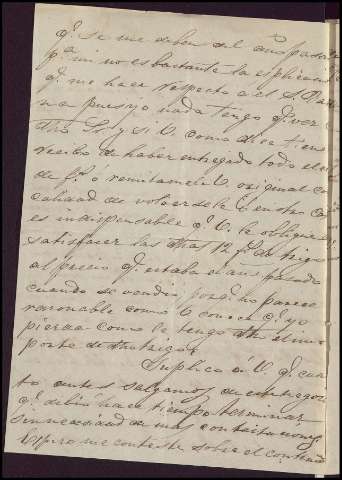 qe. se me deben del año pasado
pa. mi no es bastante la esplicacion
qe. me hace respecto a el S.
na pues yo nada tengo qe. ver
dho. Sr. y si V. como dice tiene
recibo de haber entregado todo el
de fs. o remitamelo V. original
calidad de volverselo
es indispensable qe. V. le obligue
satisfacer las dhas 12 fs. de trigo
al precio qe. estaba el año pasado
cuando se vendio porqe. no parece
rasonable como V. conoce qe. yo
pierda como le tengo dho el im
porte de dho trigo.
Suplico á V. qe. cuan
to antes salgamos de este negocio
qe. debio hace tiempo terminar
sin necesidad de mas contestaciones
Espero me conteste sobre el contenido